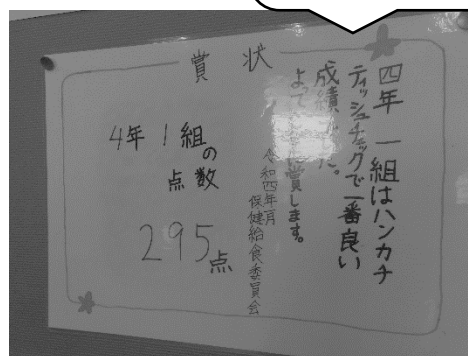 賞状
四年 一組はハンカチ
ティッシュチェックで一番良い
成績でした。
よってここに賞します。
令和四年 月
保健給食委員会
4年1組の
点数
295点